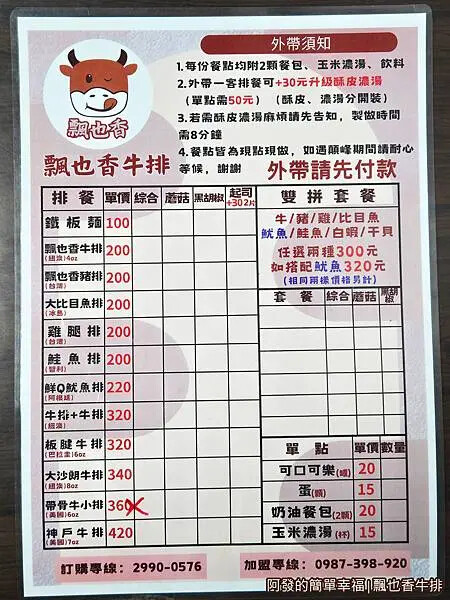 飄也香
飄也香牛排
外帶須知
1.每份餐點均附2顆餐包、玉米濃湯、飲料
2.外帶一客排餐可+30元升級酥皮濃湯
(單點需50元) (酥皮、濃湯分開裝)
3.若需酥皮濃湯麻煩請先告知,製做時間
需8分鐘
4.餐點皆為現點現做,如遇顛峰期間請耐心
等候,謝謝
外帶請先付款
排餐 單價 綜合 蘑菇 黑胡椒 起司+302片
鐵板麵 100
飄也香牛排 200
(紐澳)4oz
飄也香豬排 200
(台灣)
大比目魚排 200
(冰島)
雞腿排 200
(台灣)
鮭魚排 200
(智利)
鮮Q魷魚排 220
(阿根廷)
牛排+牛排 320
(紐澳)
板腱牛排 320
(巴拉圭)6oz
大沙朗牛排 340
(紐澳)8oz
帶骨牛小排 360
(美國)6oz
神戶牛排 420
(美國)7oz
雙拼套餐
牛/豬/雞/比目魚
魷魚/鮭魚/白蝦/干貝
任選兩種300元
如搭配魷魚320元
(相同兩樣價格另計)
套餐 綜合 蘑菇 黑胡椒
單點 單價 數量
可口可樂(罐) 20
蛋(顆) 15
奶油餐包(2顆) 20
玉米濃湯(杯) 15
訂購專線: 2990-0576
加盟專線: 0987-398-920
阿發的簡單幸福|飄也香牛排